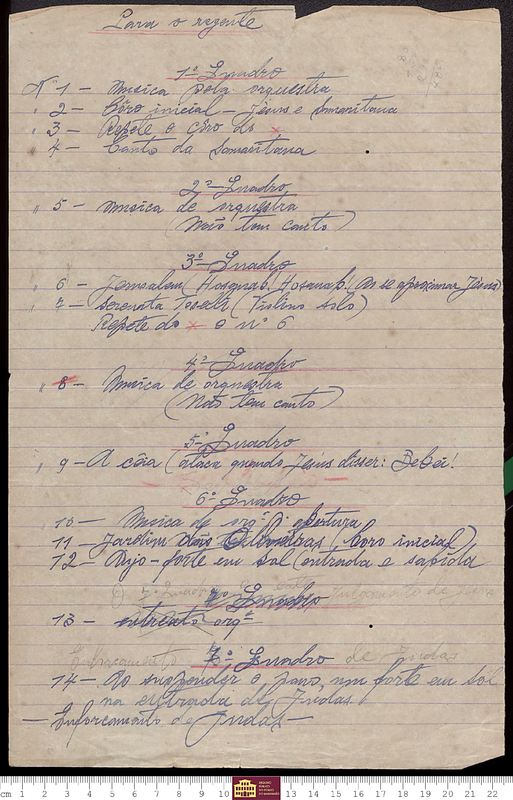 Para o regente
1º Quadro
Nº 1 – Musica pela orquestra
" 2 – Côro inicial – Jesus e Samaritana
" 3 – Repete o côro do x
" 4 – Canto da Samaritana
2º Quadro
" 5 – Musica de orquestra
(Não tem canto)
3º Quadro
" 6 – Jerusalem (Hosanah! Hosanah! Ao se aproximar Jesus)
" 7 – Serenata Toseli (Violino solo)
Repete do x o nº 6
4º Quadro
" 8 – Musica de orquestra
(Não tem canto)
5º Quadro
" 9 – A cêia (ataca quando Jesus disser: Bebei!
6º Quadro
10 – Musica de orqª abertura
11 – Jardim das Oliveiras (Coro inicial)
12 – Anjo – forte em sol (entrada e sahida
Quadro Julgamento de Jesus
13 – entreato orqª
Enforcamento de Judas
7º Quadro
14 – Ao suspender o pano, um forte em sol
na entrada de Judas
– Enforcamento de Judas –
cm 1 2 3 4 5 6 7 8 9 10 11 12 13 14 15 16 17 18 19 20 21 22